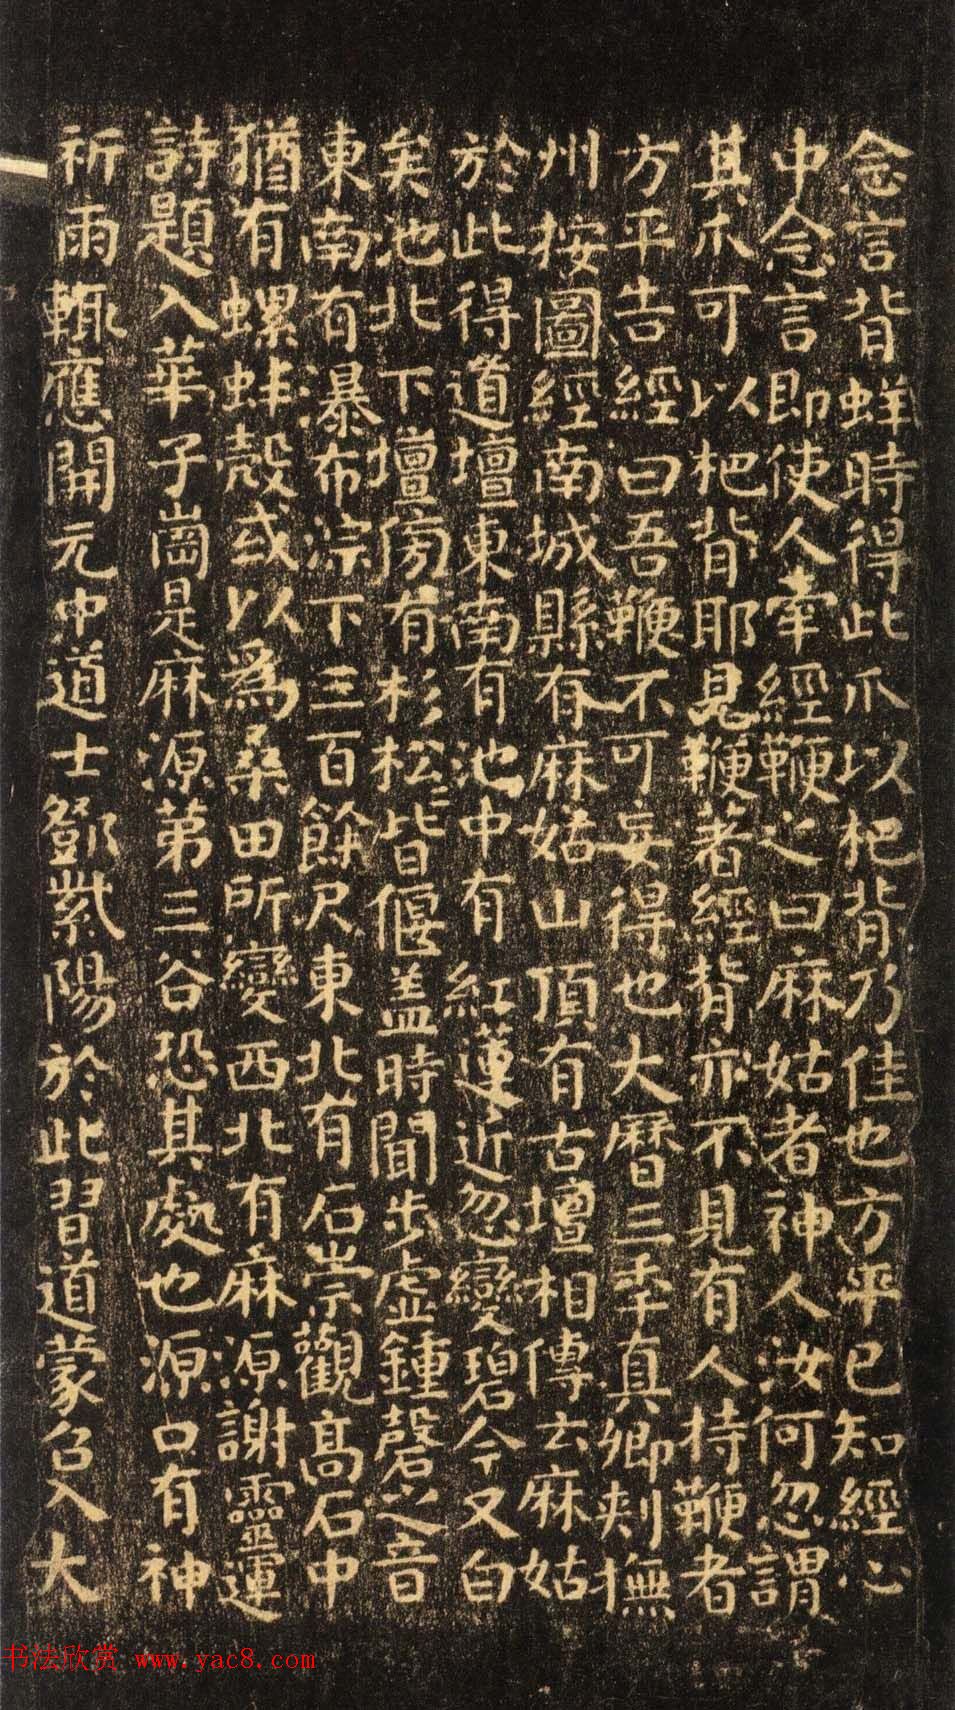 念言背蛘時得此爪以杷背乃佳也方平已知經心
中念言即使人牽經鞭之曰麻姑者神人汝何忽謂
其爪可以杷背耶見鞭著經背亦不見有人持鞭者
方平告經曰吾鞭不可妄得也大曆三季真卿刾撫
州按圖經南城縣有麻姑山頂有古壇相傳云麻姑
於此得道壇東南有池中有紅蓮近忽變碧今又白
矣池北下壇傍有杉松松皆偃盖時聞步虛鍾磬之音
東南有瀑布淙下三百餘尺東北有石崇觀高石中
猶有螺蚌殼或以為桑田所變西北有麻源謝靈運
詩題入華子崗是麻源第三谷恐其處也源口有神
祈雨輒應開元中道士鄧紫陽於此習道蒙召入大
书法欣赏 www.yac8.com